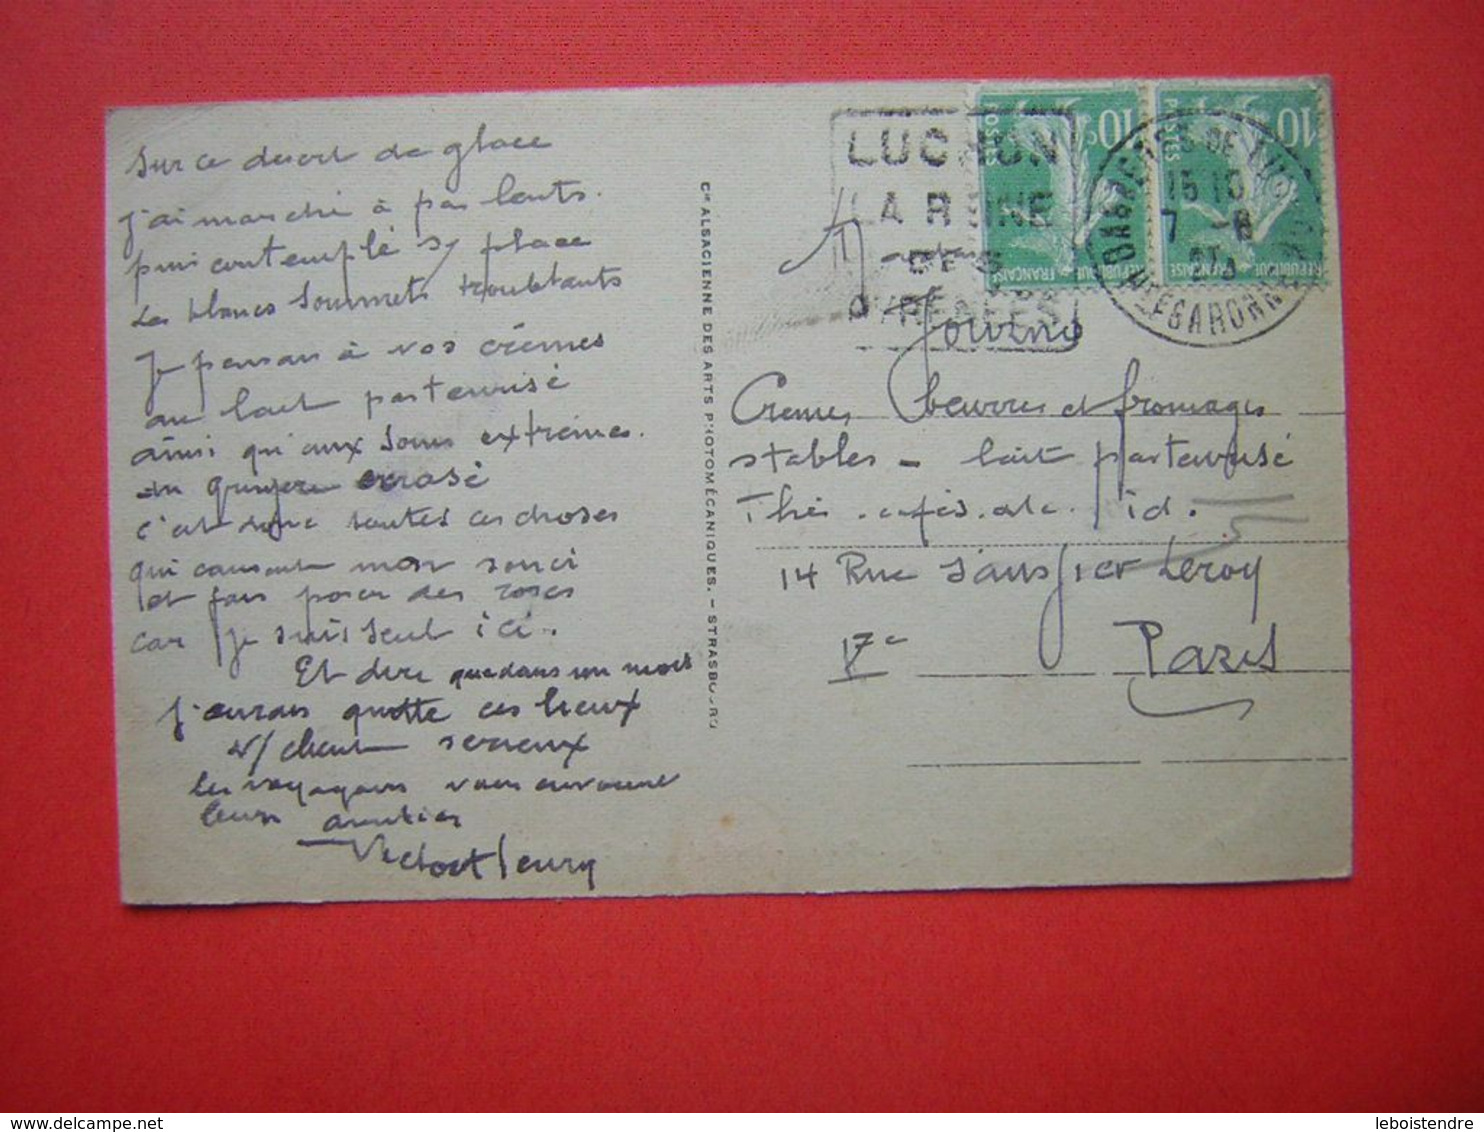 sur ce desert de glace
j'ai marché à pas lents.
puis contemplé s/ place
Les blancs sommets troublants
Je pensais à vos crèmes
au lait pasteurisé
ainsi qu'aux soins extremes.
du gruyere ecrasé
c'est donc toutes ces choses
qui causent mon souci
et fais poser des roses
car je suis seul ici.
Et dire que dans un mois
J'aurais quitte ces lieux
v/ client serieux
les voyageurs vous envoient
leurs amities
Victor Fleury
Cie ALSACIENNE DES ARTS PHOTOMÉCANIQUES. - STRASBOURG
LUCHON
LA REINE
DES
PYRENEES
10c POSTES
REPUBLIQUE FRANÇAISE
10c POSTES
REPUBLIQUE FRANÇAISE
BAGNERES DE LUCHON
15 10
7 -8
HTE GARONNE
Jouvins
Cremes, beurres et fromages
stables - lait pasteurisé
Thés. cafés. etc. id.
14 Rue Sansfier Leroy
17e Paris
leboistendre
www.delcampe.net